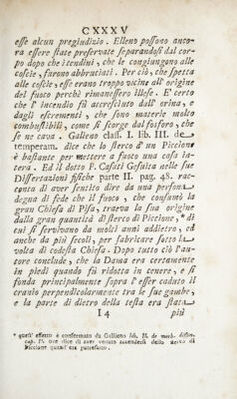 CXXXV
esse alcun pregiudizio. Elleno possono anco-
ra essere state preservate separandosi dal cor-
po dopo che i tendini, che le congiungono alle
coscie, furono abbruciati. Per ciò, che spetta
alle coscie, esse erano troppo vicine all' origine
del fuoco perchè rimanessero illese. E' certo
che l' incendio fù accresciuto dall' orina, e
dagli escrementi, che sono materie molto
combustibili, come si scorge dal fosforo, che
se ne cava. Galleno class. I. lib. III. de
temperam. dice che lo sterco d' un Piccione
è bastante per mettere a fuoco una casa in-
tera. Ed il dotto P. Casati Gesuita nelle sue
Dissertazioni fisiche parte II. pag. 48. rac-
conta di aver sentito dire da una persona
degna di fede che il fuoco, che consumò la
gran Chiesa di Pisa, traeva la sua origine
dalla gran quantità di sterco di Piccione, * di
cui si servivano da molti anni addietro, ed
anche da più secoli, per fabricare sotto la
volta di codesta Chiesa. Dopo tutto ciò l'au-
tore conclude, che la Dama era certamente
in piedi quando fù ridotta in cenere, e si
fonda principalmente sopra l' esser caduto il
cranio perpendicolarmente tra le sue gambe,
e la parte di dietro della testa era stata
I 4 più
* quest' effetto è confermato da Galleno lib. III. de morb. differ.
cap. II. ove dice di aver veduto incendersi dello sterco di
Piccione quand' era putrefatto.